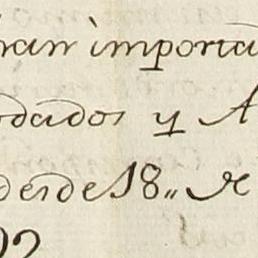 ran importa
dados y A
desde 18,, R
92